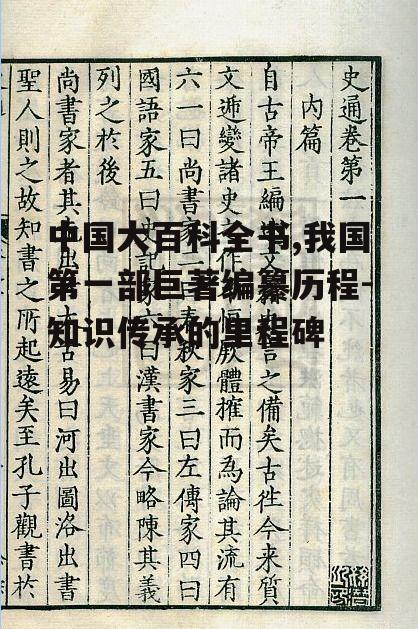 中国大百科全书,我国
第一部巨著编纂历程-
知识传承的里程碑
史通卷第一
內篇
自古帝王編述文籍外言之備矣古往今來質
文逓變諸史之作不恒厥體搉而為論其流有
六一曰尚書家二曰春秋家三曰左傳家四曰
國語家五曰史記家六曰漢書家今略陳其義
列之於後
尚書家者其先出於太古易曰河出圖洛出書
聖人則之故知書之所起遠矣至孔子觀書於